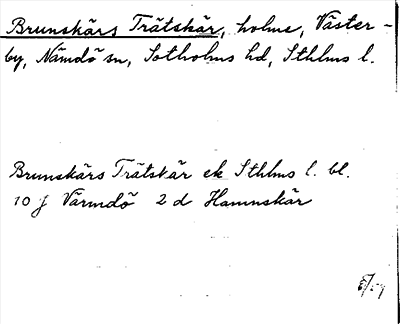 Brunskärs Trätskär, holme, Väster-
by, Nämdö sn, Sotholms hd, Sthlms l.
Brunskärs Trätskär ek Sthlms l. bl.
10 J Värmdö 2 d Hamnskär